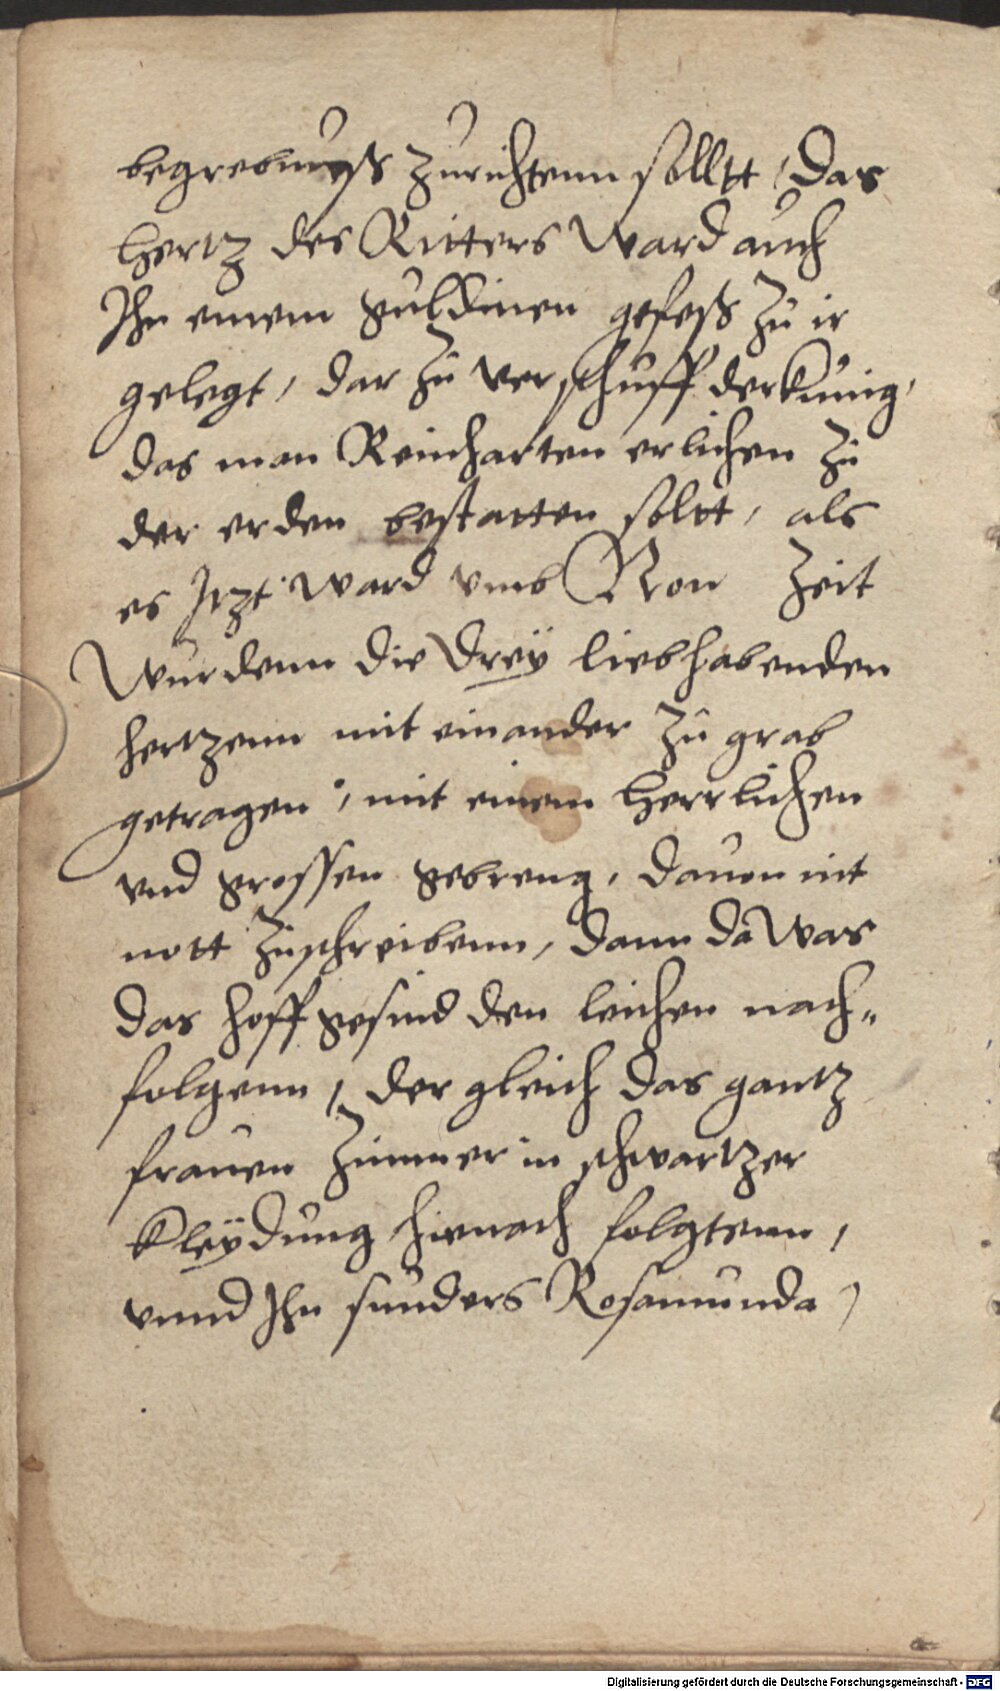 begrebnuyß zurichtenn solltt, Das
hertz des Ritters Ward auch
Ihn einem guldinen gefeß zu ir
gelegt, dar zu verschuff der kunig,
das man Reincharten erlichen zu
der erden bestatten soltt, als
es Itzt ward vmb Non Zeit
Wurdenn die Drey liebhabenden
hertzenn mit einander zu grab
getragen, mit einem herrlichen
vnd grossen gebreng, dauon nit
nott zuschreibenn, dann da Was
das hoff gesind den leichen nach„
folgenn, der gleich das gantz
frauen Zimmer in schwartzer
Kleydung hienach folgtenn,
vnnd Ihn sunders Rosamunda,
Digitalisierung gefördert durch die Deutsche Forschungsgemeinschaft - DFG